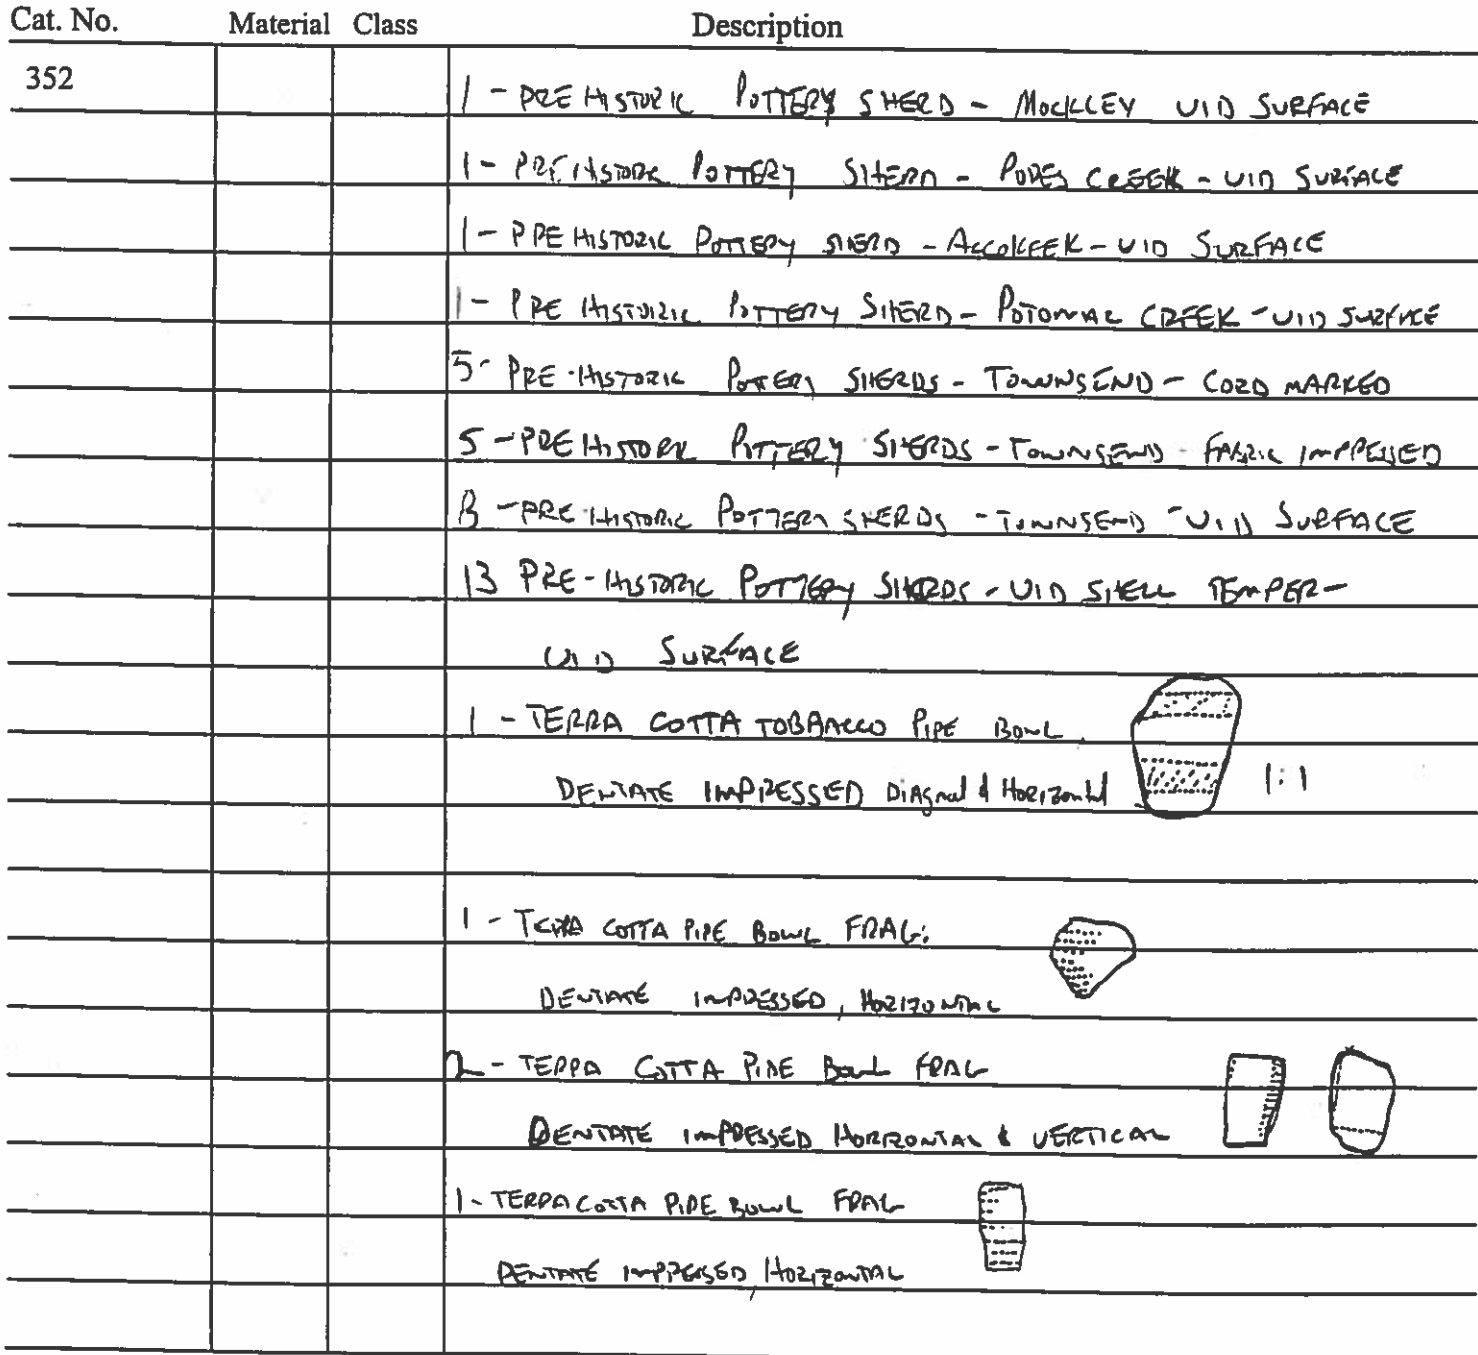 Cat. No. Material Class Description
352
1 - PREHISTORIC POTTERY SHERD - MOCKLEY UID SURFACE
1 - PREHISTORIC POTTERY SHERD - POPES CREEK - UID SURFACE
1 - PREHISTORIC POTTERY SHERD - ACCOKEEK - UID SURFACE
1 - PREHISTORIC POTTERY SHERD - POTOMAC CREEK - UID SURFACE
5 - PRE-HISTORIC POTTERY SHERDS - TOWNSEND - CORD MARKED
5 - PREHISTORIC POTTERY SHERDS - TOWNSEND - FABRIC IMPRESSED
- PRE-HISTORIC POTTERY SHERDS - TOWNSEND - UID SURFACE
13 PRE-HISTORIC POTTERY SHERDS - UID SHELL TEMPER -
UID SURFACE
1 - TERRA COTTA TOBAACCO PIPE BOWL
DENTATE IMPRESSED Diagnal & Horizontal 1:1
1 - TERRA COTTA PIPE BOWL FRAG.
DENTATE IMPRESSED, HORIZONTAL
2 - TERRA COTTA PIPE BOWL FRAG
DENTATE IMPRESSED HORIZONTAL & VERTICAL
1 - TERRA COTTA PIPE BOWL FRAG
DENTATE IMPRESSED, HORIZONTAL